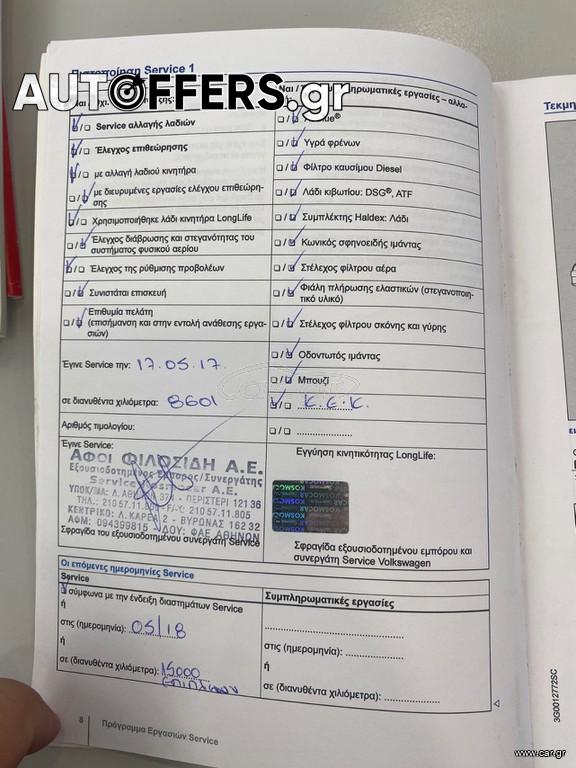 Πιστοποίηση Service 1
AUTOFFERS.gr
Service αλλαγής λαδιών
Έλεγχος επιθεώρησης
με αλλαγή λαδιού κινητήρα
με διευρυμένες εργασίες ελέγχου επιθεώρη-
σης
Χρησιμοποιήθηκε λάδι κινητήρα LongLife
Έλεγχος διάβρωσης και στεγανότητας του
συστήματος φυσικού αερίου
Έλεγχος της ρύθμισης προβολέων
Συνιστάται επισκευή
Επιθυμία πελάτη
(επισήμανση και στην εντολή ανάθεσης εργα-
σιών)
Έγινε Service την: 17.05.17.
σε διανυθέντα χιλιόμετρα: 8601
Αριθμός τιμολογίου:
Έγινε Service:
ΑΦΟΙ ΦΙΛΟΣΙΔΗ Α.Ε.
Εξουσιοδοτημένος Έμπορος/Συνεργάτης
ΠΕΡΙΣΤΕΡΙ 121 36
ΤΗΛ.: 210 57.11.805
ΚΕΝΤΡΙΚΟ: Λ. ΚΑΡΕΑ 2 - ΒΥΡΩΝΑΣ 162 32
ΑΦΜ: 094399815 - ΔΟΥ: ΦΑΕ ΑΘΗΝΩΝ
Σφραγίδα του εξουσιοδοτημένου συνεργάτη Service
Ναι / συμπληρωματικές εργασίες – αλλα-
Υγρά φρένων
Φίλτρο καυσίμου Diesel
Λάδι κιβωτίου: DSG®, ATF
Συμπλέκτης Haldex: Λάδι
Κωνικός σφηνοειδής ιμάντας
Στέλεχος φίλτρου αέρα
Φιάλη πλήρωσης ελαστικών (στεγανοποιη-
τικό υλικό)
Στέλεχος φίλτρου σκόνης και γύρης
Οδοντωτός ιμάντας
Μπουζί
Κ.Ε.Κ.
Εγγύηση κινητικότητας LongLife:
KOSMOCAR
Σφραγίδα εξουσιοδοτημένου εμπόρου και
συνεργάτη Service Volkswagen
Οι επόμενες ημερομηνίες Service
Service
σύμφωνα με την ένδειξη διαστημάτων Service
ή
στις (ημερομηνία): 05/18
ή
σε (διανυθέντα χιλιόμετρα): 15000
Συμπληρωματικές εργασίες
στις (ημερομηνία):
ή
σε (διανυθέντα χιλιόμετρα):
8 Πρόγραμμα Εργασιών Service
Τεκμη
3G0012772SC
www.car.gr